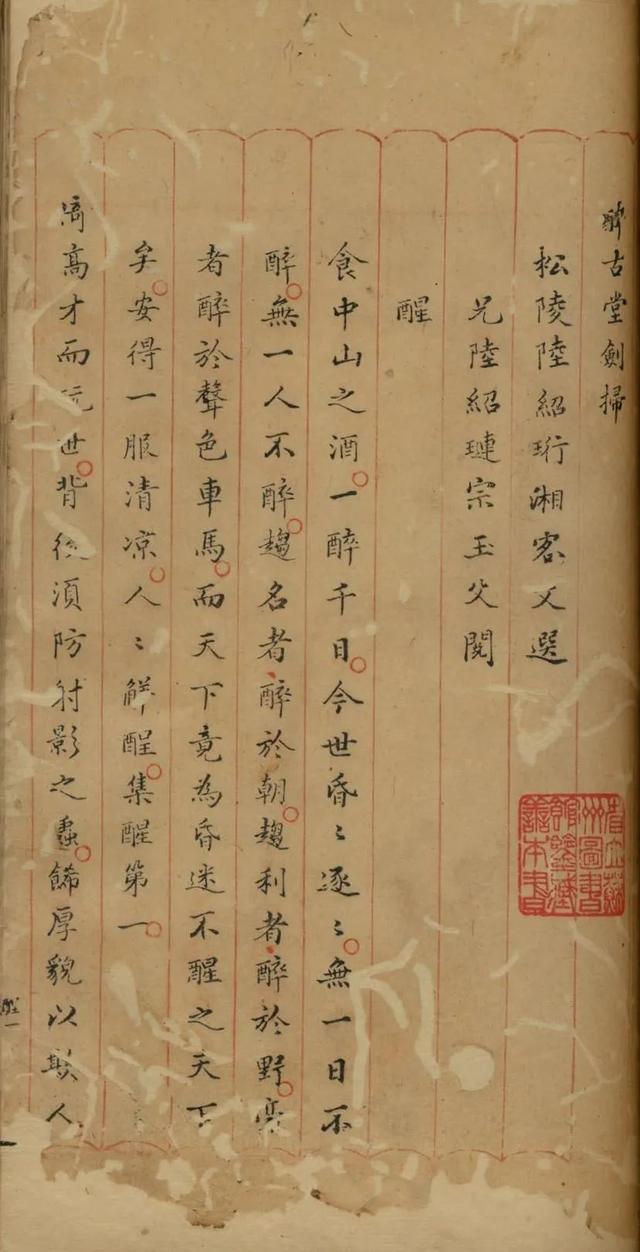 醉古堂劍掃
松陵陸紹珩湘客父選
兄陸紹璉宗玉父閱
醒
食中山之酒一醉千日今世昏〻逐〻無一日不
醉無一人不醉趨名者醉於朝趨利者醉於野豪
者醉於聲色車馬而天下竟為昏迷不醒之天下
矣安得一服清凉人〻解酲集醒第一
高才而玩世背後須防射影之蟲餙厚貌以欺人
蘇州圖書
館鑒藏
善本書